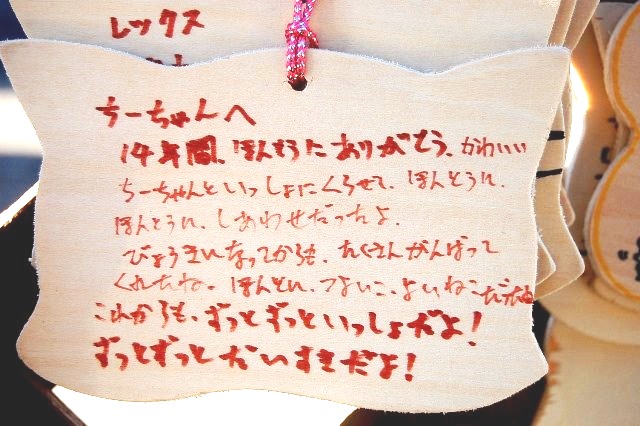 レックス
ちーちゃんへ
14年間、ほんとうにありがとう、かわいい
ちーちゃんといっしょにくらせて、ほんとうに、
ほんとうに、しあわせだったよ。
びょうきになってからも、たくさんがんばって
くれたね。ほんとに、つよいこ、よいねこだったね
これからも、ずっとずっといっしょだよ!
ずっとずっとだいすきだよ!